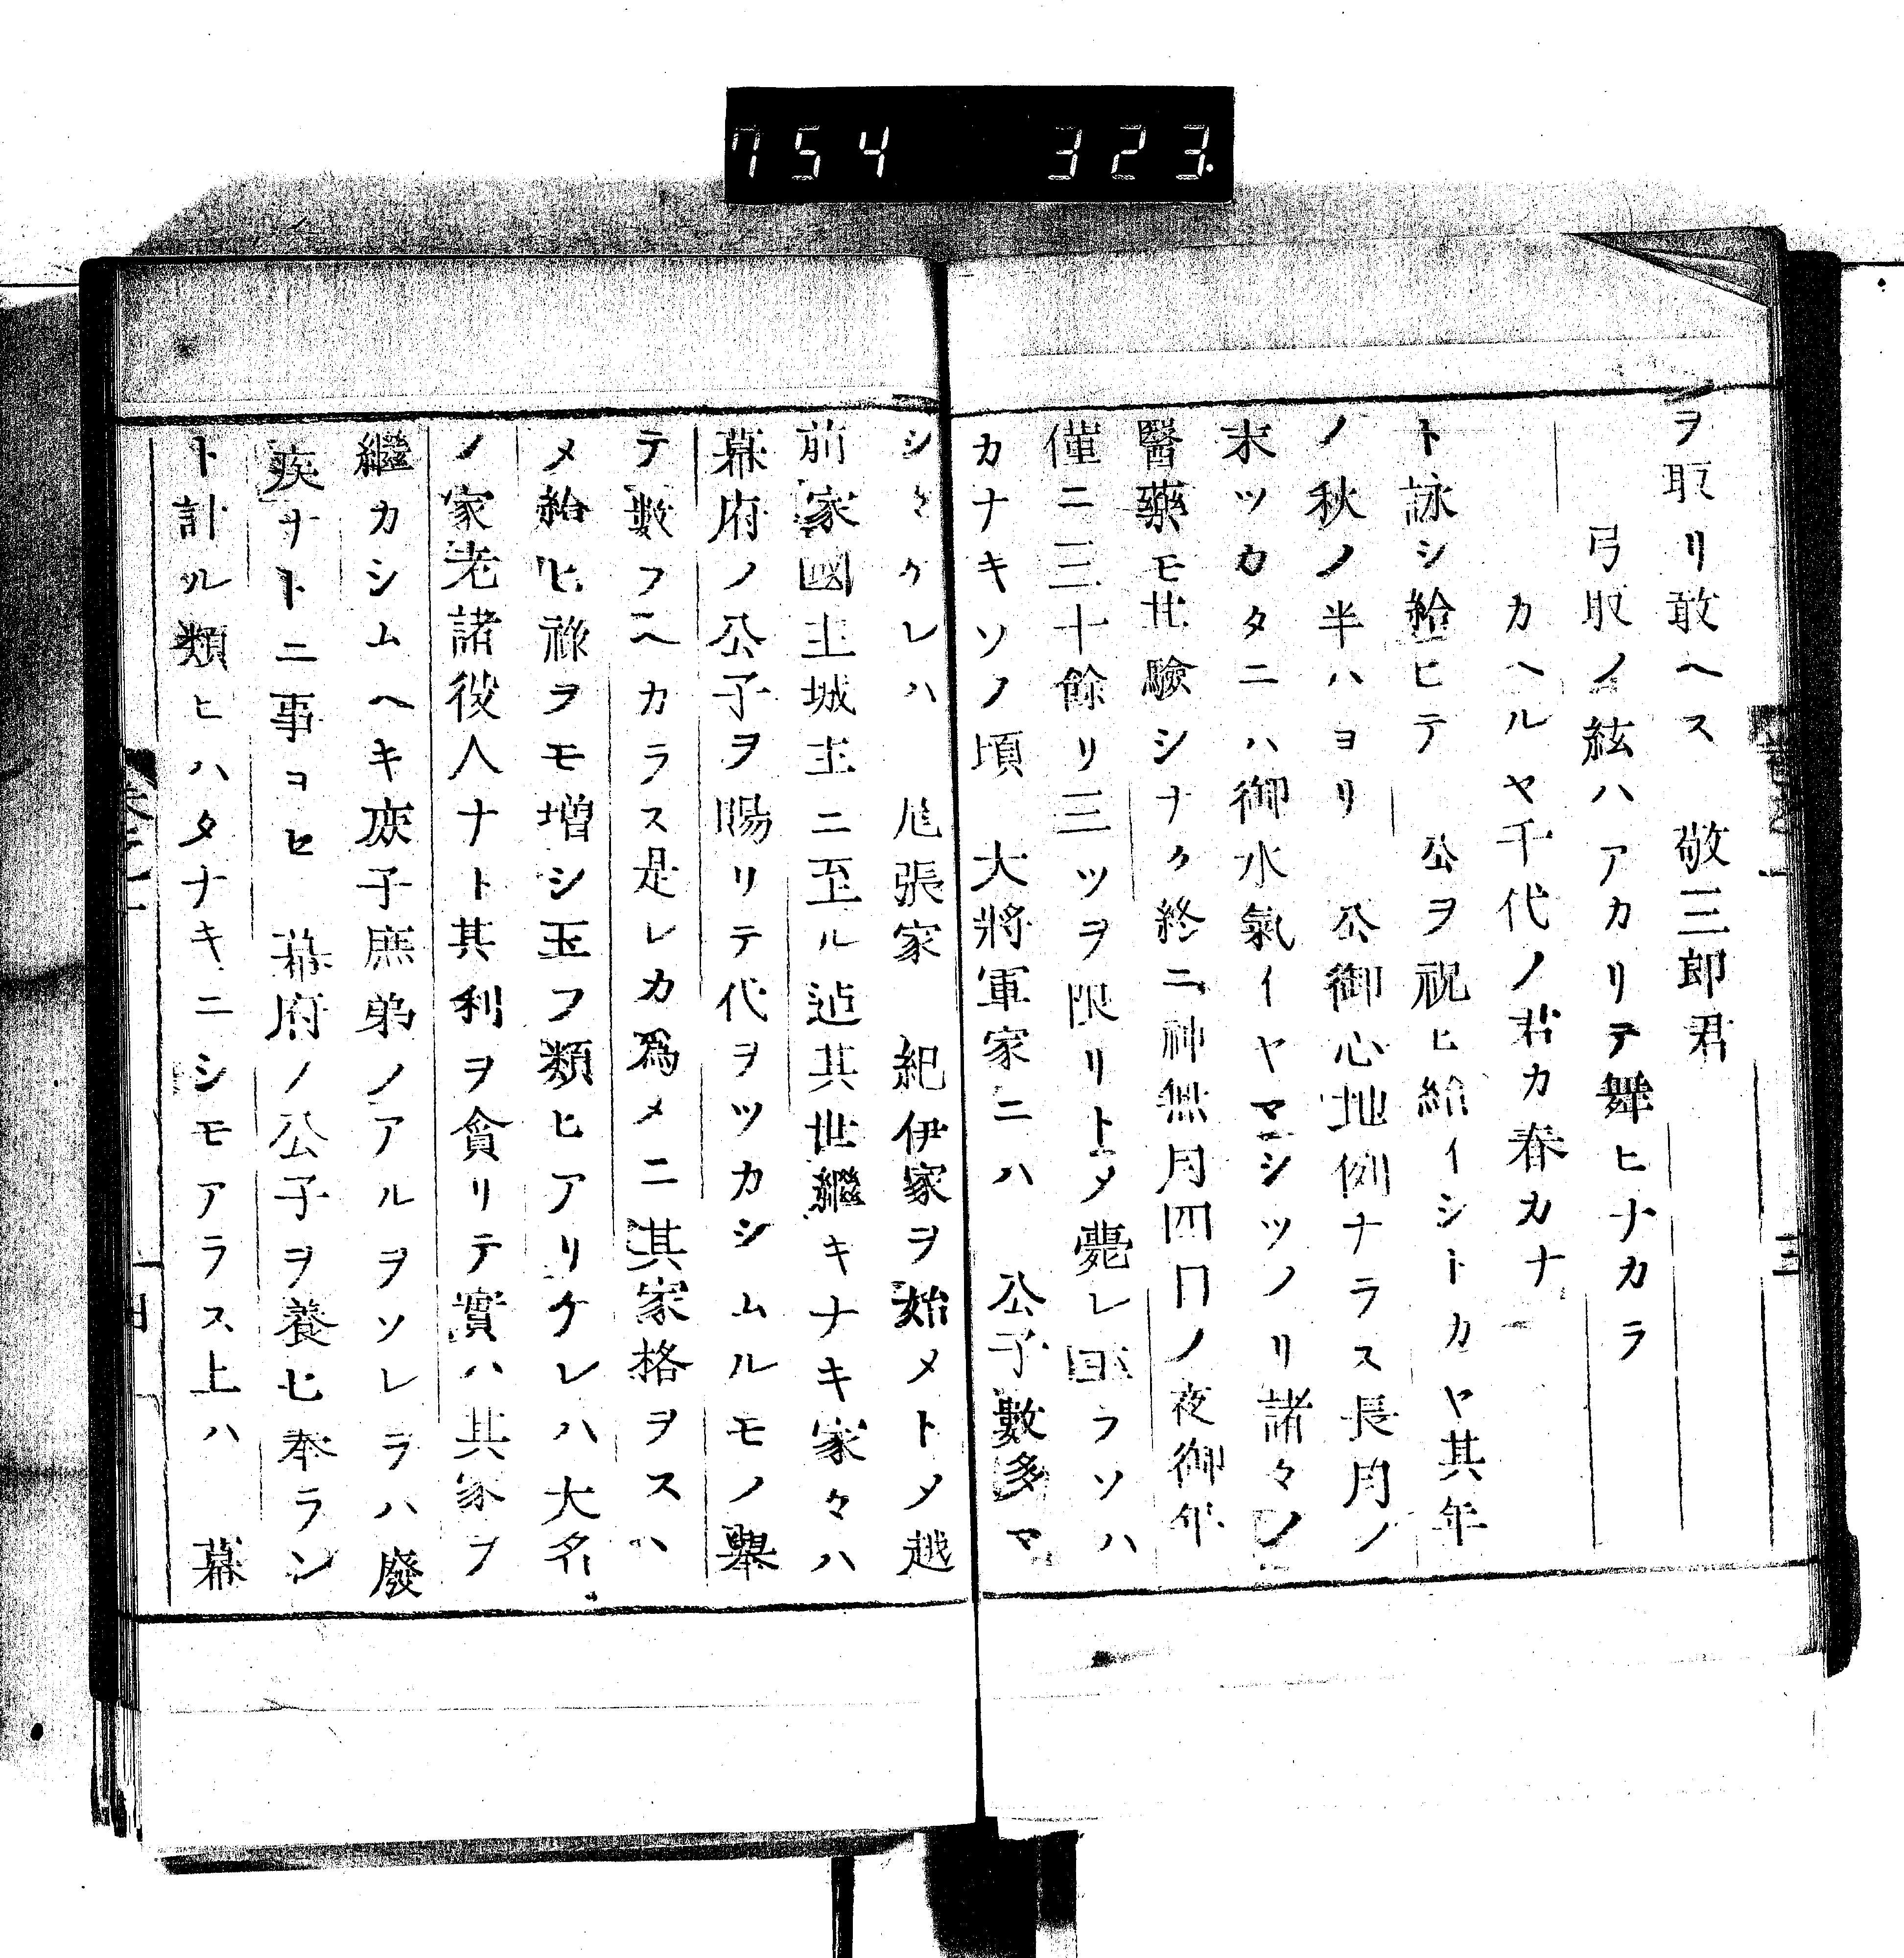 754 323.
ヲ取リ敢ヘス 敬三郎君
弓取ノ絃ハアカリテ舞ヒナカラ
カヘルヤ千代ノ君カ春カナ
ト詠シ給ヒテ 公ヲ祝ヒ給イシトカヤ其年
ノ秋ノ半ハヨリ 公御心地例ナラス長月ノ
末ツカタニハ御水氣イヤマシツノリ諸々ノ
醫藥モ其驗シナク終ニ神無月四日ノ夜御年
僅ニ三十餘リ三ツヲ限リトメ薨レ玉フソハ
カナキソノ頃 大將軍家ニハ 公子數多マ
シ々ケレハ 尾張家 紀伊家ヲ始メトメ越
前家國主城主ニ至ル迄其世繼キナキ家々ハ
幕府ノ公子ヲ賜リテ代ヲツカシムルモノ擧
テ數フヘカラス是レカ爲メニ其家格ヲスヽ
メ給ヒ祿ヲモ增シ玉フ類ヒアリケレハ大名
ノ家老諸役人ナト其利ヲ貪リテ實ハ其家ヲ
繼カシムヘキ庶子庶弟ノアルヲソレラハ廢
疾ナトニ事ヨセ 幕府ノ公子ヲ養ヒ奉ラン
ト計ル類ヒハタナキニシモアラス上ハ 幕